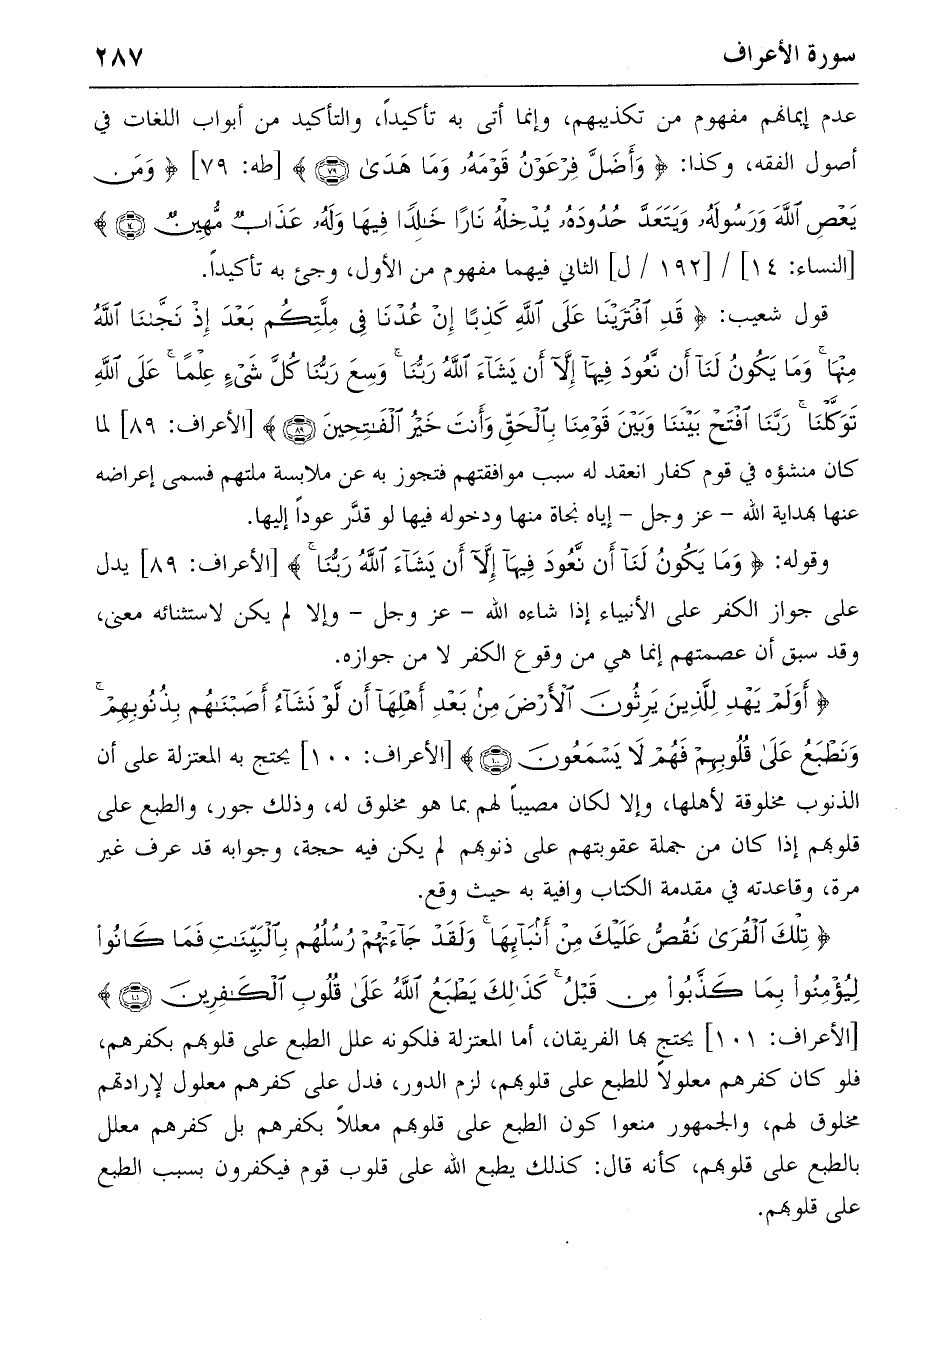 سورة الأعراف ٢٨٧
عدم إيمانهم مفهوم من تكذيبهم، وإنما أتى به تأكيداً، والتأكيد من أبواب اللغات في
أصول الفقه، وكذا: ﴿ وَأَضَلَّ فِرْعَوْنُ قَوْمَهُۥ وَمَا هَدَىٰ ۝٧٩ ﴾ [طه: ٧٩] ﴿ وَمَن
يَعْصِ ٱللَّهَ وَرَسُولَهُۥ وَيَتَعَدَّ حُدُودَهُۥ يُدْخِلْهُ نَارًا خَٰلِدًا فِيهَا وَلَهُۥ عَذَابٌ مُّهِينٌ ۝١٤ ﴾
[النساء: ١٤] / [١٩٢ / ل] الثاني فيهما مفهوم من الأول، وجئ به تأكيداً.
قول شعيب: ﴿ قَدِ ٱفْتَرَيْنَا عَلَى ٱللَّهِ كَذِبًا إِنْ عُدْنَا فِى مِلَّتِكُم بَعْدَ إِذْ نَجَّىٰنَا ٱللَّهُ
مِنْهَا ۚ وَمَا يَكُونُ لَنَآ أَن نَّعُودَ فِيهَآ إِلَّآ أَن يَشَآءَ ٱللَّهُ رَبُّنَا ۚ وَسِعَ رَبُّنَا كُلَّ شَىْءٍ عِلْمًا ۚ عَلَى ٱللَّهِ
تَوَكَّلْنَا ۚ رَبَّنَا ٱفْتَحْ بَيْنَنَا وَبَيْنَ قَوْمِنَا بِٱلْحَقِّ وَأَنتَ خَيْرُ ٱلْفَٰتِحِينَ ۝٨٩ ﴾ [الأعراف: ٨٩] لما
كان منشؤه في قوم كفار انعقد له سبب موافقتهم فتجوز به عن ملابسة ملتهم فسمى إعراضه
عنها بهداية الله – عز وجل – إياه نجاة منها ودخوله فيها لو قدَّر عوداً إليها.
وقوله: ﴿ وَمَا يَكُونُ لَنَآ أَن نَّعُودَ فِيهَآ إِلَّآ أَن يَشَآءَ ٱللَّهُ رَبُّنَا ۚ ﴾ [الأعراف: ٨٩] يدل
على جواز الكفر على الأنبياء إذا شاءه الله – عز وجل – وإلا لم يكن لاستثنائه معنى،
وقد سبق أن عصمتهم إنما هي من وقوع الكفر لا من جوازه.
﴿ أَوَلَمْ يَهْدِ لِلَّذِينَ يَرِثُونَ ٱلْأَرْضَ مِنۢ بَعْدِ أَهْلِهَآ أَن لَّوْ نَشَآءُ أَصَبْنَٰهُم بِذُنُوبِهِمْ ۚ
وَنَطْبَعُ عَلَىٰ قُلُوبِهِمْ فَهُمْ لَا يَسْمَعُونَ ۝١٠٠ ﴾ [الأعراف: ١٠٠] يحتج به المعتزلة على أن
الذنوب مخلوقة لأهلها، وإلا لكان مصيباً لهم بما هو مخلوق له، وذلك جور، والطبع على
قلوبهم إذا كان من جملة عقوبتهم على ذنوبهم لم يكن فيه حجة، وجوابه قد عرف غير
مرة، وقاعدته في مقدمة الكتاب وافية به حيث وقع.
﴿ تِلْكَ ٱلْقُرَىٰ نَقُصُّ عَلَيْكَ مِنْ أَنۢبَآئِهَا ۚ وَلَقَدْ جَآءَتْهُمْ رُسُلُهُم بِٱلْبَيِّنَٰتِ فَمَا كَانُوا۟
لِيُؤْمِنُوا۟ بِمَا كَذَّبُوا۟ مِن قَبْلُ ۚ كَذَٰلِكَ يَطْبَعُ ٱللَّهُ عَلَىٰ قُلُوبِ ٱلْكَٰفِرِينَ ۝١٠١ ﴾
[الأعراف: ١٠١] يحتج بها الفريقان، أما المعتزلة فلكونه علل الطبع على قلوبهم بكفرهم،
فلو كان كفرهم معلولاً للطبع على قلوبهم، لزم الدور، فدل على كفرهم معلول لإرادتهم
مخلوق لهم، والجمهور منعوا كون الطبع على قلوبهم معللاً بكفرهم بل كفرهم معلل
بالطبع على قلوبهم، كأنه قال: كذلك يطبع الله على قلوب قوم فيكفرون بسبب الطبع
على قلوبهم.